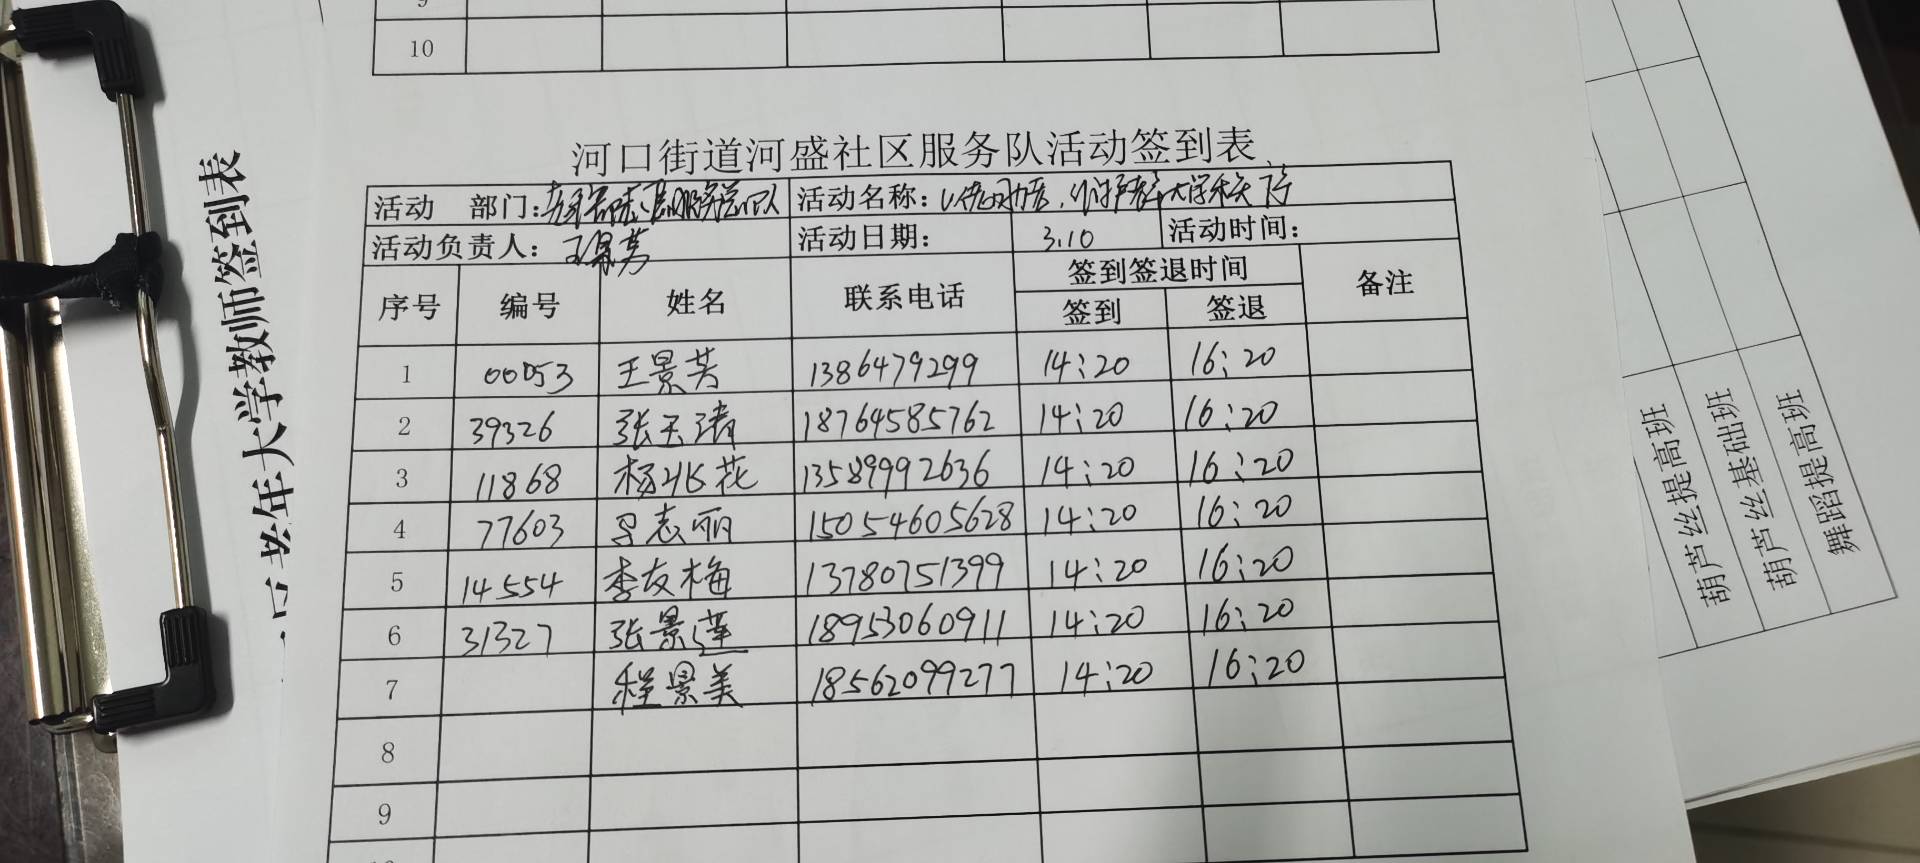 9
10
河口街道河盛社区服务队活动签到表
活动 部门: 活动名称:
活动负责人: 王景芳 活动日期: 3.10 活动时间:
序号 编号 姓名 联系电话 签到签退时间 备注
签到 签退
1 00053 王景芳 1386479299 14:20 16:20
2 39326 张玉清 18764585762 14:20 16:20
3 11868 杨兆花 13589992636 14:20 16:20
4 77603 志丽 15054605628 14:20 16:20
5 14554 李友梅 13780751399 14:20 16:20
6 31327 张景莲 18953060911 14:20 16:20
7 程景美 18562099277 14:20 16:20
8
9
老年大学教师签到表
葫芦丝提高班
葫芦丝基础班
舞蹈提高班